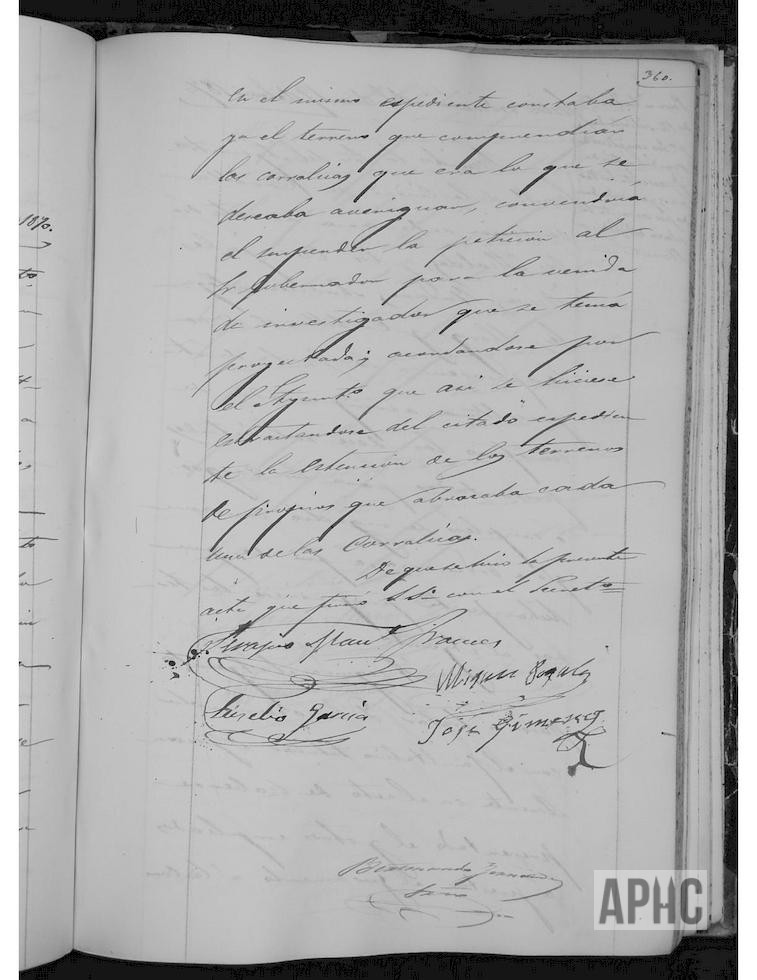 360.
en el mismo espediente constaba
ya el terreno que comprendian
las corralizas que era lo que se
deseaba averiguar, convendria
el suspender la peticion al
Sr Gobernador para la venida
de investigador que se tenia
proyectada; acordandose por
el Ayunto que asi se hiciese
estractandose del citado espedien
te la estension de los terrenos
de propios que abrazaba cada
una de las Corralizas.
De que se hizo la presente
acta que firmó S.S.a con el Secreto=
Frances
Miguel
Eusebio Garcia
Jose Gimenez
1870.
APHC